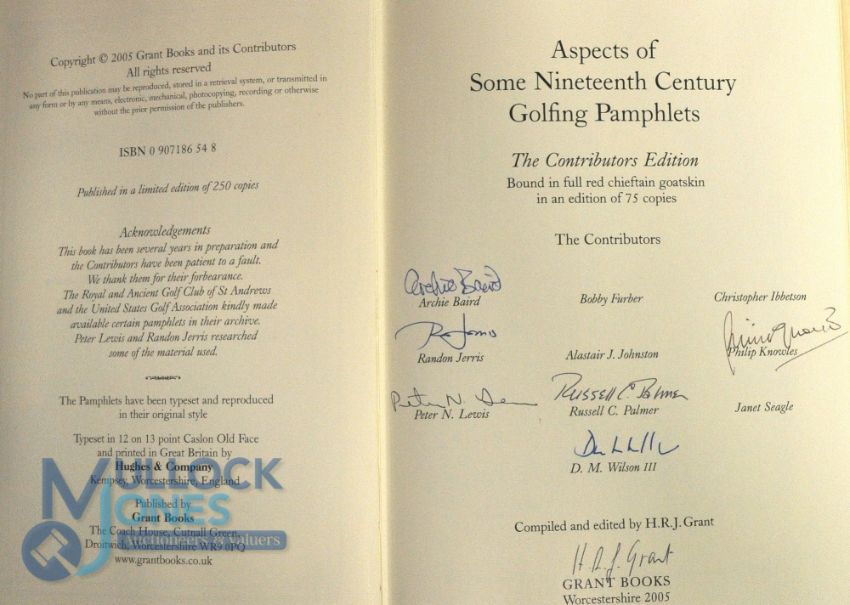 Copyright © 2005 Grant Books and its Contributors
All rights reserved
No part of this publication may be reproduced, stored in a retrieval system, or transmitted in
any form or by any means, electronic, mechanical, photocopying, recording or otherwise
without the prior permission of the publishers.
ISBN 0 907186 54 8
Published in a limited edition of 250 copies
Acknowledgements
This book has been several years in preparation and
the Contributors have been patient to a fault.
We thank them for their forbearance.
The Royal and Ancient Golf Club of St Andrews
and the United States Golf Association kindly made
available certain pamphlets in their archive.
Peter Lewis and Randon Jerris researched
some of the material used.
The Pamphlets have been typeset and reproduced
in their original style
Typeset in 12 on 13 point Caslon Old Face
and printed in Great Britain by
Hughes & Company
Kempsey, Worcestershire, England
Published by
Grant Books
The Coach House, Cutnall Green,
Droitwich, Worcestershire WR9 0PQ
www.grantbooks.co.uk
MULLOCK
JONES
Auctioneers & Valuers
Aspects of
Some Nineteenth Century
Golfing Pamphlets
The Contributors Edition
Bound in full red chieftain goatskin
in an edition of 75 copies
The Contributors
Archie Baird
Archie Baird Bobby Furber Christopher Ibbetson
Randon Jerris Alastair J. Johnston Philip Knowles
Peter N. Russell C. Palmer
Peter N. Lewis Russell C. Palmer Janet Seagle
D. M. Wilson III
Compiled and edited by H.R.J. Grant
H. R. J. Grant
GRANT BOOKS
Worcestershire 2005